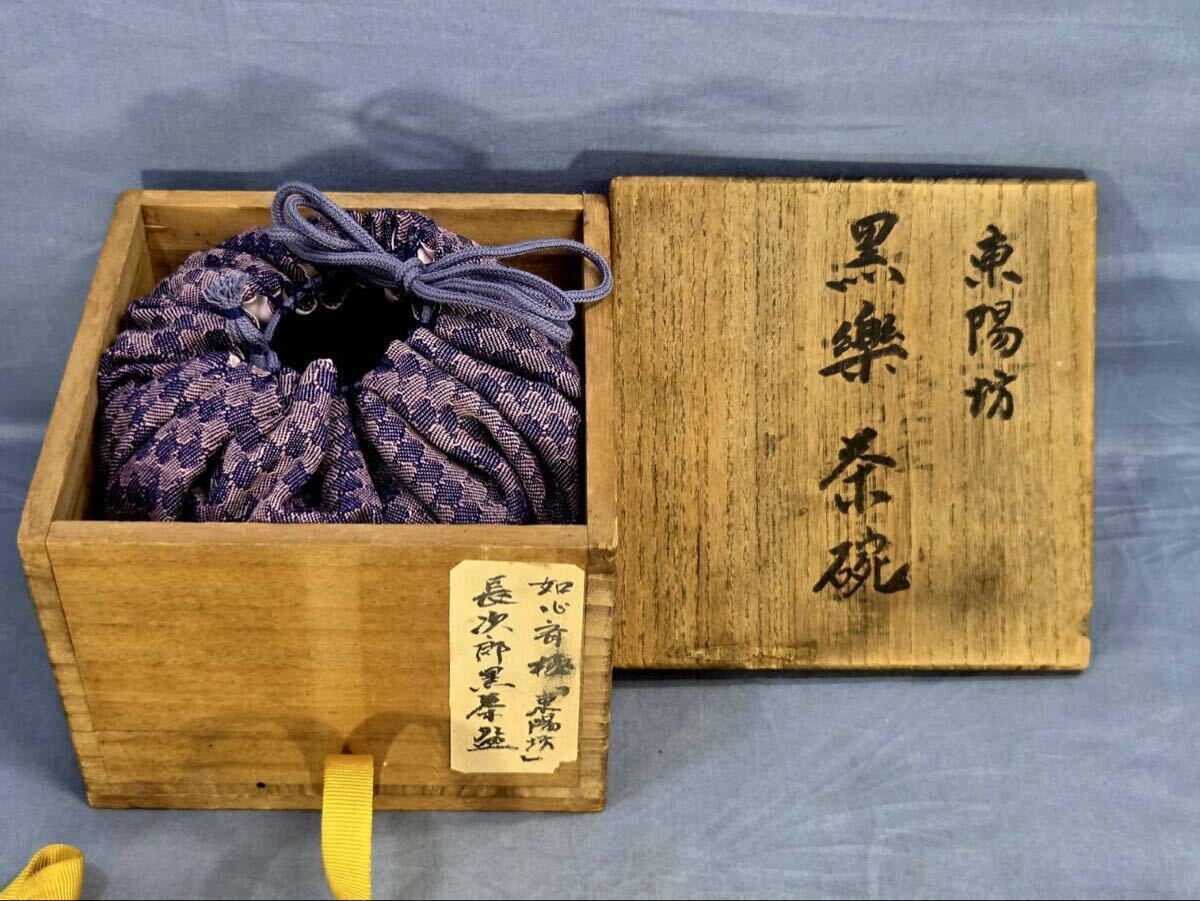 東陽坊
黒樂茶碗
如心斎極「東陽坊」
長次郎黒茶碗